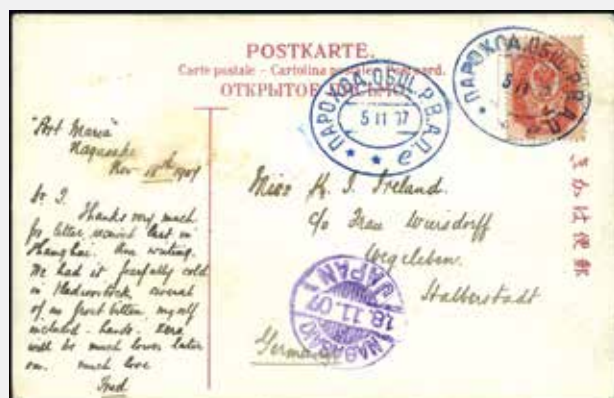 POSTKARTE.
Carte postale – Cartolina postale – Postcard.
ОТКРЫТОЕ ПИСЬМО
ПАРОХОД. ОБЩ. Р.В.А.П.
5 11 07
e
ПАРОХОД. ОБЩ. Р.В.А.П.
5 11
きかは便郵
"Port Maria"
Nagasaki
Nov 18th 1907
Dr I.
Thanks very much
for letter received last in
Shanghai. Am writing.
We had it fearfully cold
in Vladivostock, several
of us frost bitten, myself
included - hands.
will be much lower later
on. much love
Fred
Miss K. I. Ireland.
c/o Frau Wiersdorff
Wegeleben.
Halberstadt
Germany
NAGASAKI
18.11.07
JAPAN